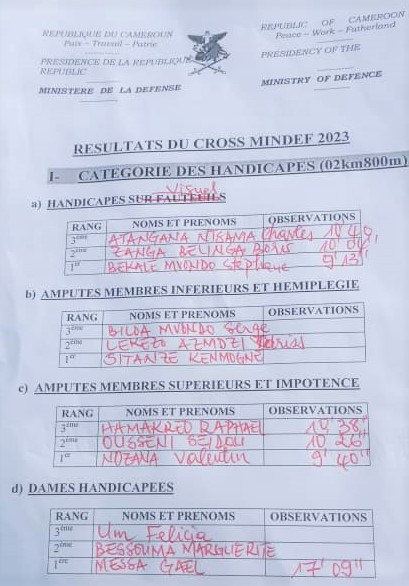 REPUBLIQUE DU CAMEROUN
Paix – Travail – Patrie
PRESIDENCE DE LA REPUBLIQUE
REPUBLIC
MINISTERE DE LA DEFENSE
REPUBLIC OF CAMEROON
Peace – Work – Fatherland
PRESIDENCY OF THE
MINISTRY OF DEFENCE
RESULTATS DU CROSS MINDEF 2023
I- CATEGORIE DES HANDICAPES (02km800m)
Visuel
a) HANDICAPES SUR FAUTEUILS
RANG NOMS ET PRENOMS OBSERVATIONS
3ème ATANGANA NTSAMA Charles 10' 49"
2ème ZANGA BELINGA Boris 10' 04"
1er BEKALE MVONDO Stephane 9' 13"
b) AMPUTES MEMBRES INFERIEURS ET HEMIPLEGIE
RANG NOMS ET PRENOMS OBSERVATIONS
3ème BILOA MVONDO Serge
2ème LEKEZO AZMOZI
1er SITANZE KENMOGNE
c) AMPUTES MEMBRES SUPERIEURS ET IMPOTENCE
RANG NOMS ET PRENOMS OBSERVATIONS
3ème HAMAKRED RAPHAEL 10' 38"
2ème OUSSENI SEIDOU 10' 26"
1er NDZANA Valentin 9' 40"
d) DAMES HANDICAPEES
RANG NOMS ET PRENOMS OBSERVATIONS
3ème Um Felicia
2ème BESSOUMA MARGUERITE
1ère MESSA GAEL 17' 09"